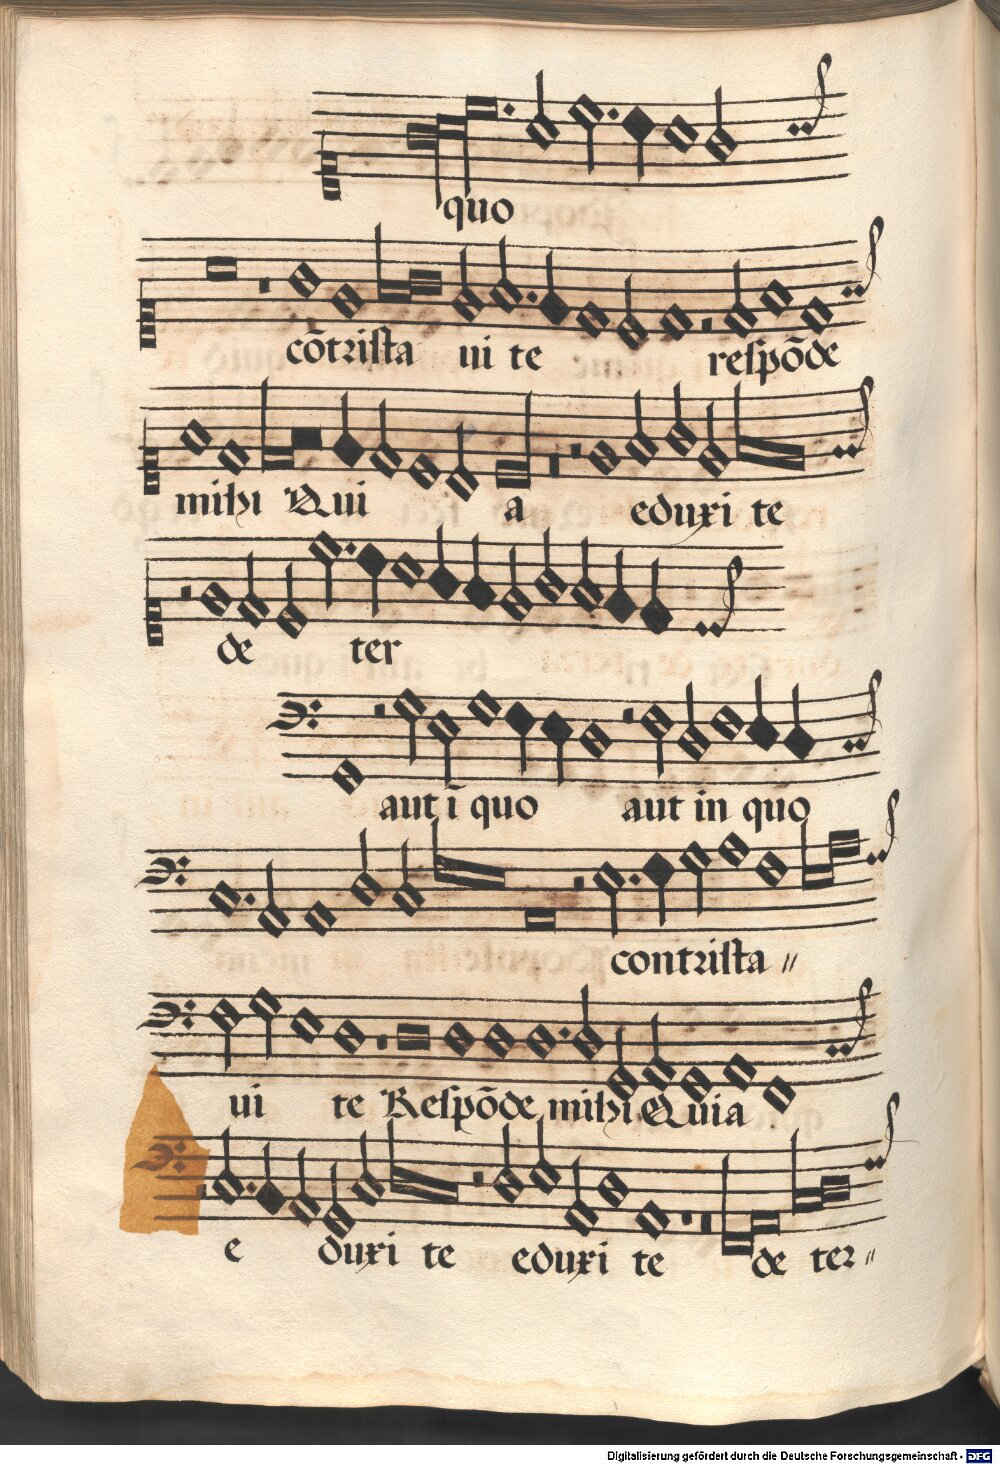 quo
cōtrista ui te respōde
mihi Qui a eduxi te
de ter
aut ī quo aut in quo
contrista //
ui te Respōde mihi Quia
e duxi te eduxi te de ter //
Digitalisierung gefördert durch die Deutsche Forschungsgemeinschaft - DFG